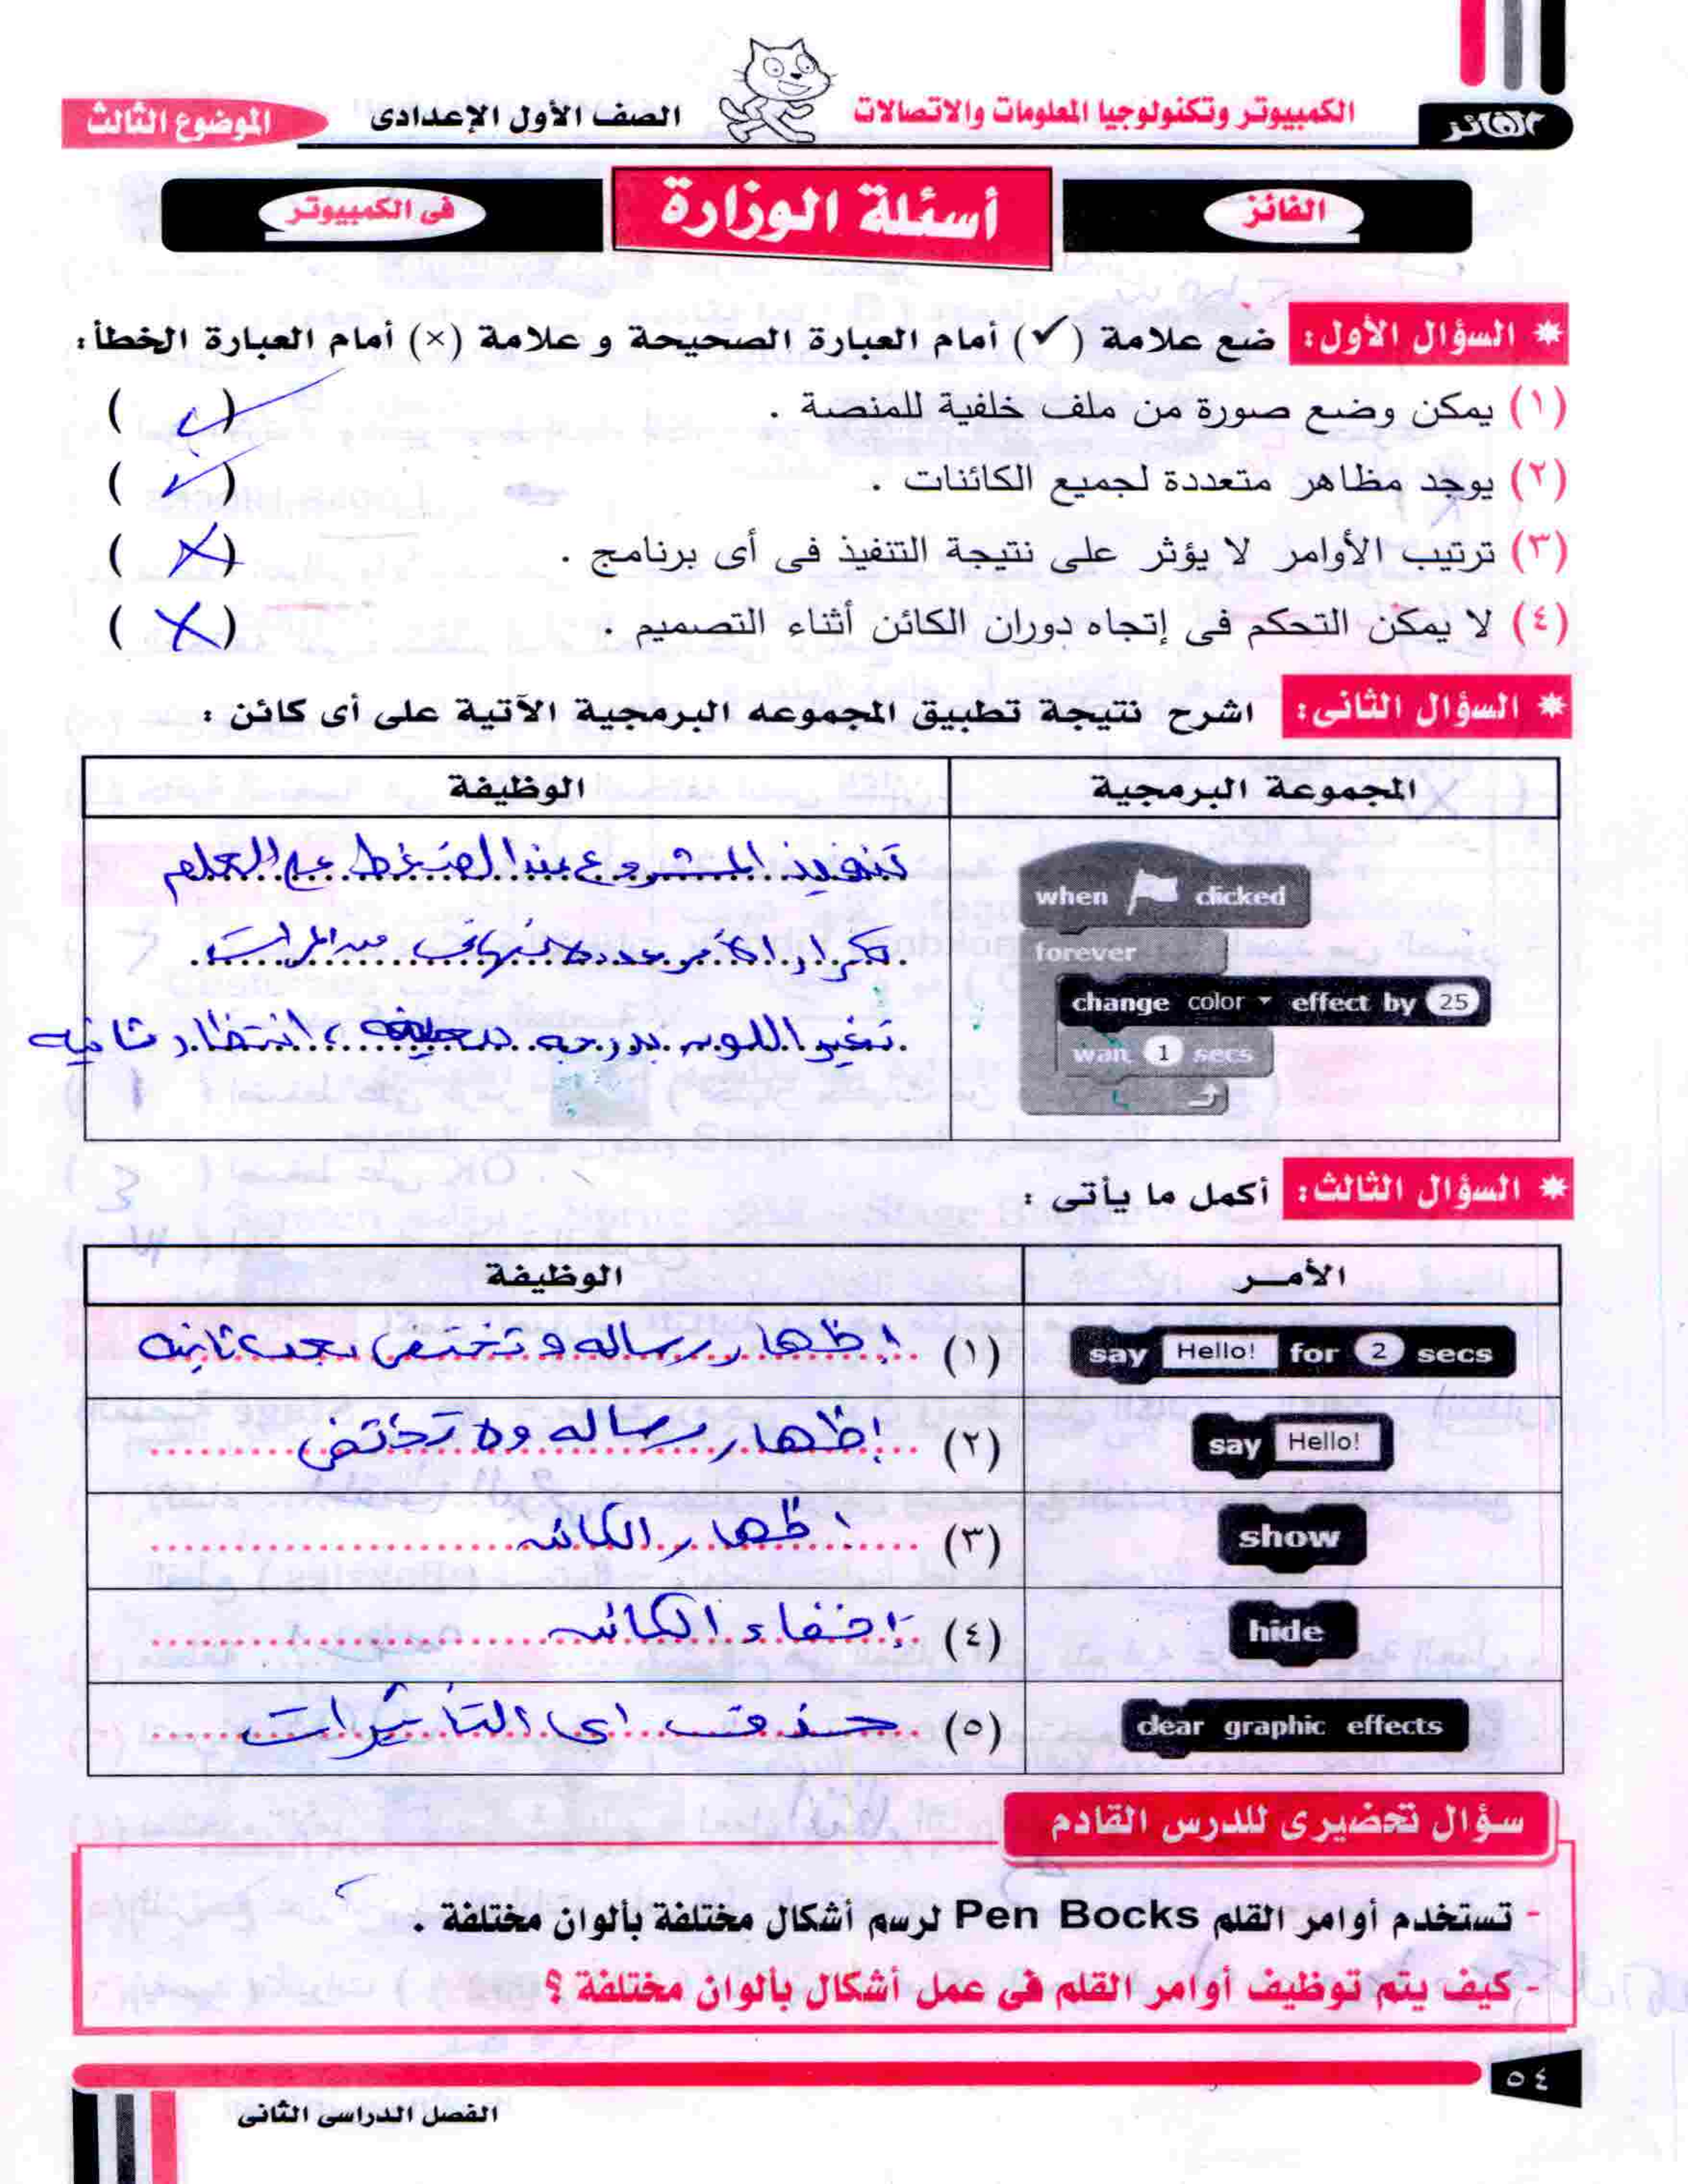 الفائز
الكمبيوتر وتكنولوجيا المعلومات والاتصالات
الصف الأول الإعدادى
الموضوع الثالث
الفائز
أسئلة الوزارة
فى الكمبيوتر
* السؤال الأول: ضع علامة (✓) أمام العبارة الصحيحة و علامة (×) أمام العبارة الخطأ:
(١) يمكن وضع صورة من ملف خلفية للمنصة . (✓)
(٢) يوجد مظاهر متعددة لجميع الكائنات . (✓)
(٣) ترتيب الأوامر لا يؤثر على نتيجة التنفيذ فى أى برنامج . (×)
(٤) لا يمكن التحكم فى إتجاه دوران الكائن أثناء التصميم . (×)
* السؤال الثانى: اشرح نتيجة تطبيق المجموعه البرمجية الآتية على أى كائن :
المجموعة البرمجية
الوظيفة
when clicked
forever
change color effect by 25
wait 1 secs
تنفيذ المشروع عند الضغط على العلم
تكرار الأمر عدد لانهائى من المرات
تغير اللون بدرجه ، انتظار ثانيه
* السؤال الثالث: أكمل ما يأتى :
الأمــر
الوظيفة
say Hello! for 2 secs
(١) اظهار رساله و تختفى بعد ثانيه
say Hello!
(٢) إظهار رساله ولا تختفى
show
(٣) اظهار الكائن
hide
(٤) إخفاء الكائن
clear graphic effects
(٥) حذف اى التأثيرات
سؤال تحضيرى للدرس القادم
- تستخدم أوامر القلم Pen Bocks لرسم أشكال مختلفة بألوان مختلفة .
- كيف يتم توظيف أوامر القلم فى عمل أشكال بألوان مختلفة ؟
٥٤
الفصل الدراسى الثانى